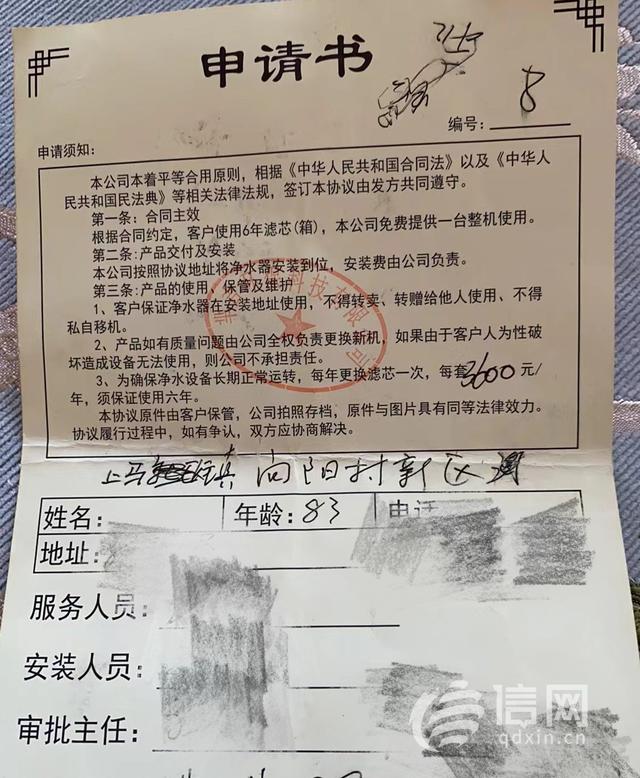 申请书
编号: 8
申请须知:
本公司本着平等合用原则，相据《中华人民共和国合同法》以及《中华人
民共和国民法典》等相关法律法规，签订本协议由发方共同遵守。
第一条: 合同主效
根据合同约定，客户使用6年滤芯(箱)，本公司免费提供一台整机使用。
第二条:产品交付及安装
本公司按照协议地址将净水器安装到位，安装费由公司负责。
第三条:产品的使用，保管及维护
1、客户保证净水器在安装地址使用，不得转卖、转赠给他人使用、不得
私自移机。
2、产品如有质量问题由公司全权负责更换新机，如果由于客户人为性破
坏造成设备无法使用，则公司不承担责任。
3、为确保净水设备长期正常运转，每年更换滤芯一次，每套3600元/
年，须保证使用六年。
本协议原件由客户保管，公司拍照存档，原件与图片具有同等法律效力。
协议履行过程中，如有争认，双方应协商解决。
科技有限公司
上马 向阳村新区
姓名: 年龄: 83 电话
地址:
服务人员:
安装人员:
审批主任:
信网
qdxin.cn